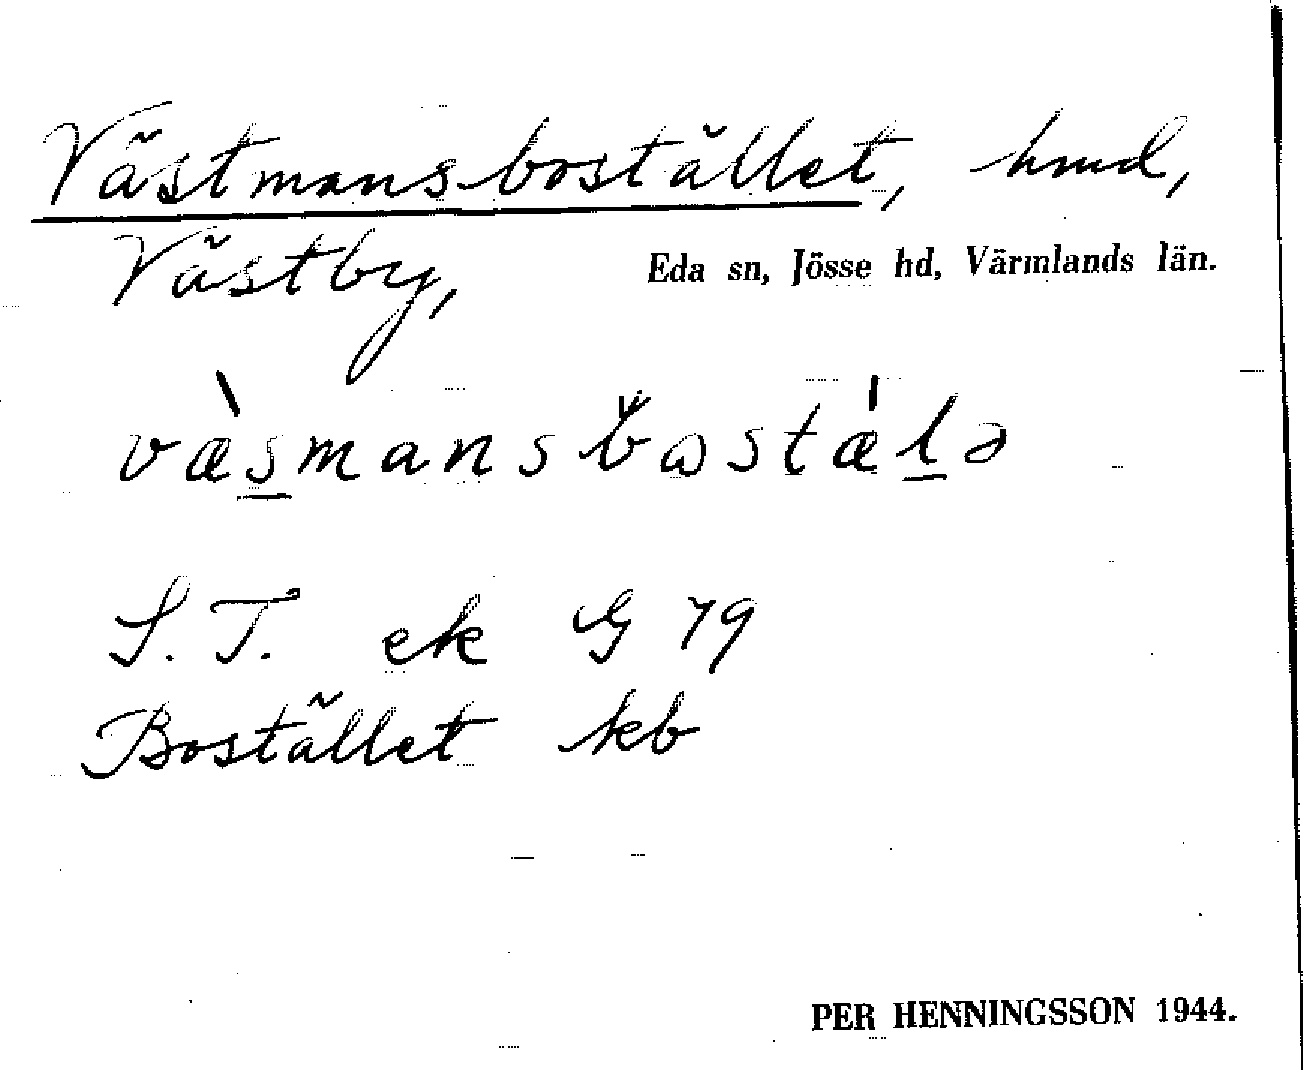 Västmansbostället, hmd,
Västby, Eda sn, Jösse hd, Värmlands län.
væ̀s̲mansbɷstǽl̲ə
S. T. ek G 79
Bostället kb
PER HENNINGSSON 1944.